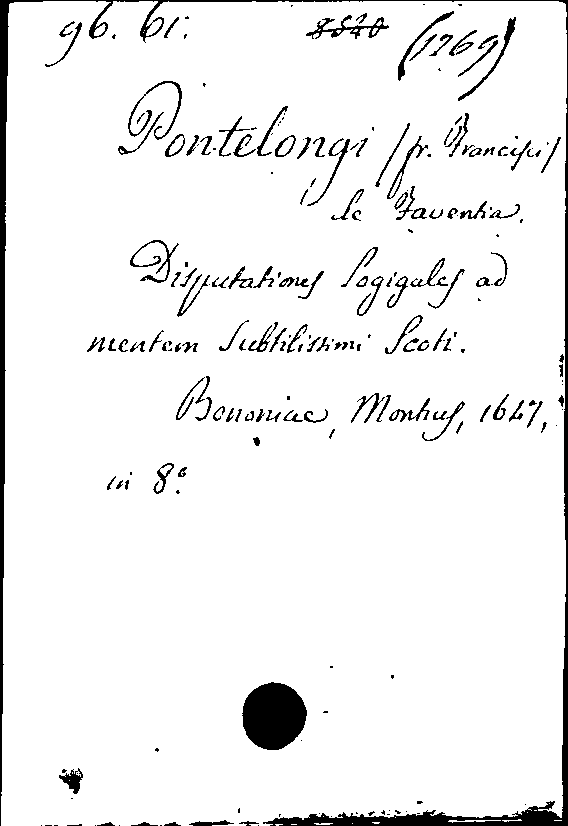 96. 61.
8520 (1269)
Pontelongi /fr. Francisci/
de Faventia.
Disputationes Logigales ad
mentem Subtilissimi Scoti.
Bononiae, Montius, 1647,
in 8°.